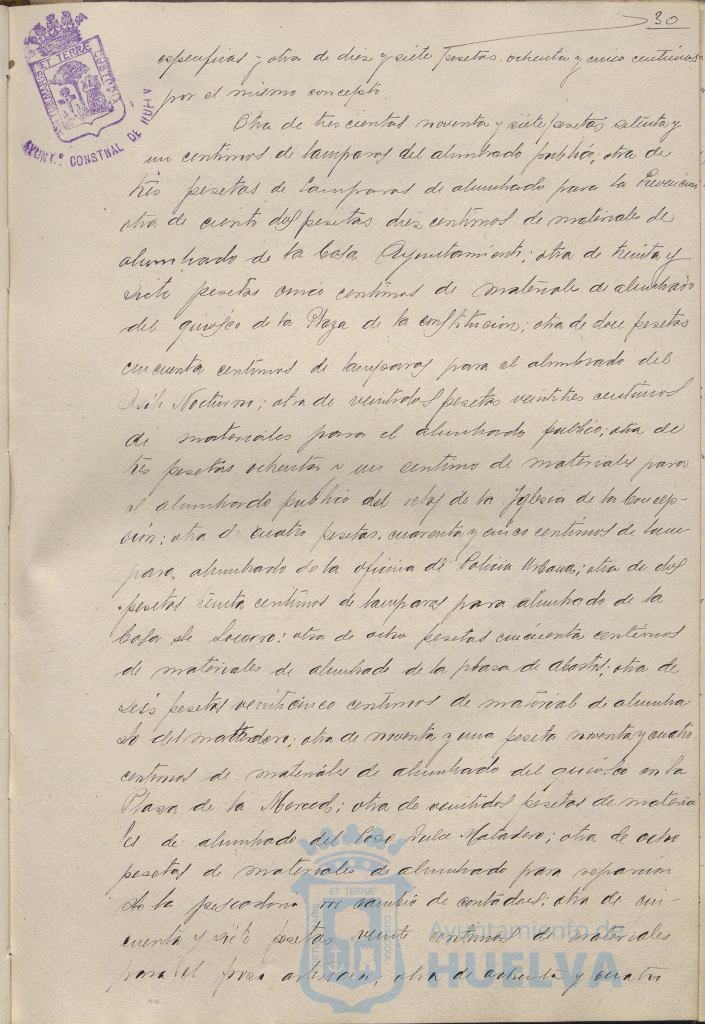 30
especificas y otra de diez y siete pesetas ochenta y cinco centimos
por el mismo concepto
Otra de trescientas noventa y siete pesetas setenta y
un centimos de lamparas del alumbrado publico; otra de
tres pesetas de lamparas de alumbrado para la Prevencion
otra de ciento dos pesetas diez centimos de materiale de
alumbrado de la Casa Ayuntamiento; otra de treinta y
siete pesetas cinco centimos de materiale de alumbrado
del quiosco de la Plaza de la constitucion; otra de doce pesetas
cincuenta centimos de lamparas para el alumbrado del
Asilo Nocturno; otra de veintidos pesetas veintitres centimos
de materiales para el alumbrado publico; otra de
tres pesetas ochenta y un centimo de materiales para
el alumbrado publico del reloj de la Iglesia de la Concep-
ción; otra de cuatro pesetas cuarenta y cinco centimos de lam
para alumbrado de la oficina de Policia Urbana; otra de dos
pesetas treinta centimos de lamparas para alumbrado de la
Casa de Socorro; otra de ocho pesetas cincuenta centimos
de materiales de alumbrado de la plaza de abastos; otra de
seis pesetas veinticinco centimos de material de alumbra-
do del matadero; otra de noventa y una peseta noventa y cuatro
centimos de materiales de alumbrado del quiosco en la
Plaza de la Merced; otra de veintidos pesetas de materia
les de alumbrado del Poso dulce Matadero; otra de ocho
pesetas de materiales de alumbrado para reparacion
de la pescaderia por cambio de contador; otra de cin-
cuenta y siete pesetas veinte centimos de materiales
para el pozo artesiano, otra de ochenta y cuatro
AYUNT.º CONSTNAL DE HUELVA
ET TERRÆ
Ayuntamiento de
HUELVA